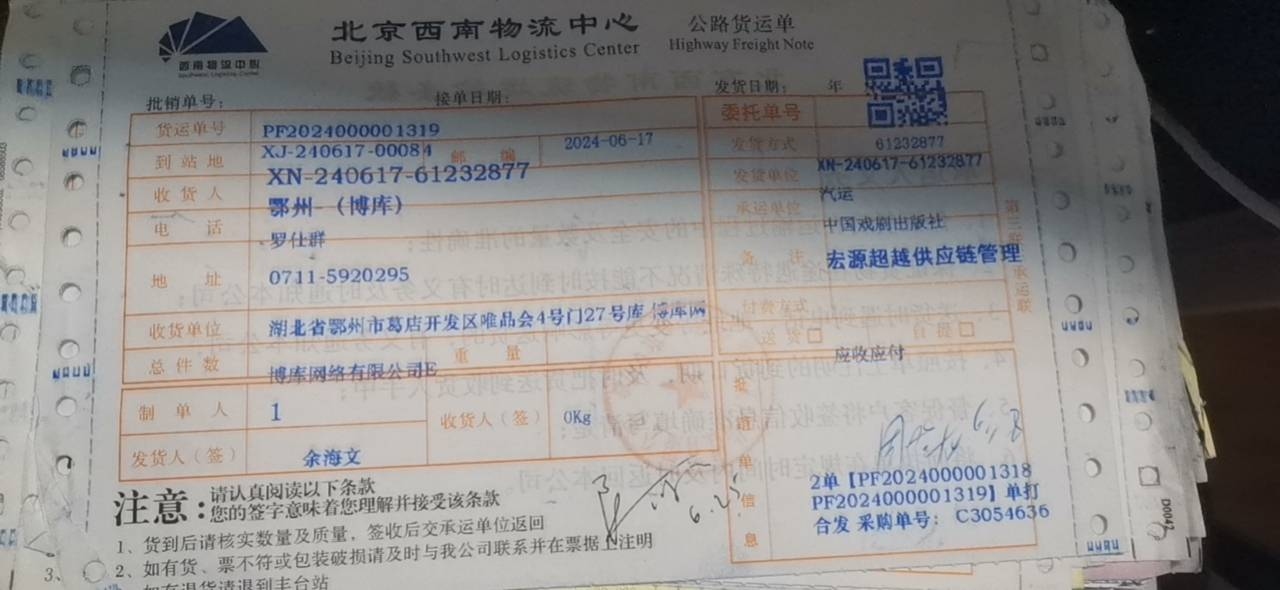 北京西南物流中心
公路货运单
Beijing Southwest Logistics Center
Highway Freight Note
西南物流中心
Southwest Logistics Center
批销单号：
接单日期：
发货日期：
年
货运单号
PF2024000001319
委托单号
61232877
到站地
XJ-240617-00084
邮 编
2024-06-17
发货方式
XN-240617-61232877
收货人
XN-240617-61232877
发货单位
汽运
电 话
鄂州-（博库）
承运单位
中国戏剧出版社
罗仕群
备 注
宏源超越供应链管理
地 址
0711-5920295
付费方式
收货单位
湖北省鄂州市葛店开发区唯品会4号门27号库 博库网
送货□
自提□
总件数
博库网络有限公司E
重 量
应收应付
制单人
1
收货人（签）
0Kg
发货人（签）
余海文
批销单信息
2单【PF2024000001318
PF2024000001319】单打
合发 采购单号： C3054636
第三联 承运联
6.25
注意：
请认真阅读以下条款
您的签字意味着您理解并接受该条款
1、货到后请核实数量及质量，签收后交承运单位返回
2、如有货、票不符或包装破损请及时与我公司联系并在票据上注明
3、如有退货请退到丰台站
D0042